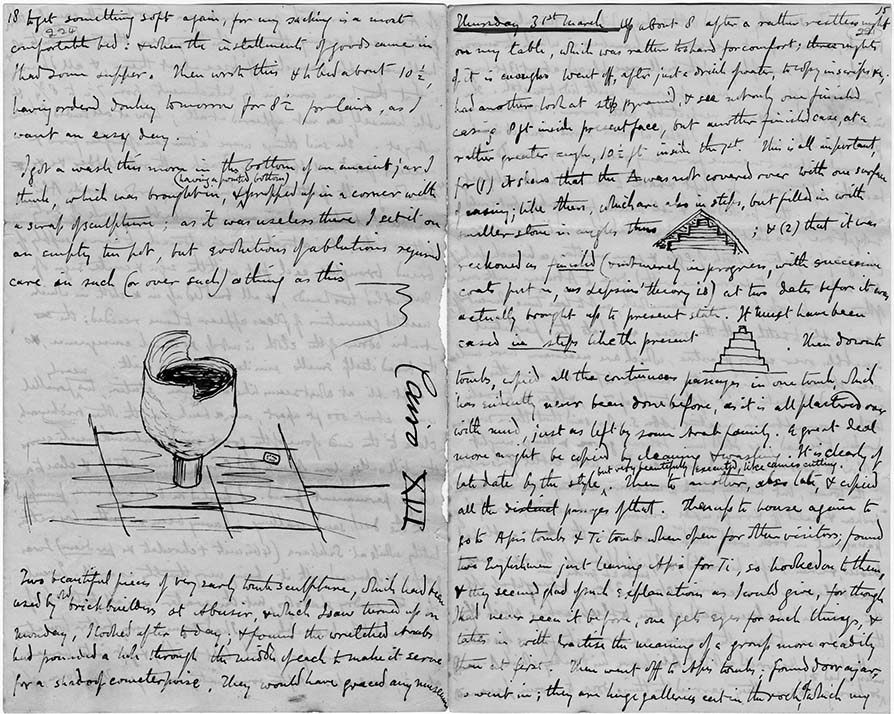 18 to get something soft again, for my sacking is a most
224
comfortable bed: & when the installments of goods came in
I had some supper. Then wrote this & to bed about 10½,
having ordered donkey tomorrow for 8½ for Cairo, as I
want an easy day.
I got a wash this morn in the bottom of an ancient jar I
(having a pointed bottom)
think, which was brought in, & propped up in a corner with
a scrap of sculpture; as it was useless there I set it on
an empty tin pot, but evolutions of ablutions required
care in such (or over such) a thing as this
Cairo XVII
Two beautiful pieces of very early tomb sculpture, which had been
used by old brick builders at Abusir, & which I saw turned up on
Monday, I looked after today: & found the wretched Arabs
had pounded a hole through the middle of each to make it serve
for a shadoof counterpoise. They would have graced any museum
19
Thursday 31st March Up about 8 after a rather restless night
on my table, which was rather too hard for comfort, three nights
of it is enough. Went off, after just a drink of water, to copy inscrips &c.
had another look at step pyramid, & see not only one finished
casing 8 ft inside present face, but another finished case, at a
rather greater angle, 10½ ft inside the 1st. This is all important,
for (1) it shows that the Δ was not covered over with one surface
of casing; like others, which are also in steps, but filled in with
smaller stone in angles thus ; & (2) that it was
reckoned as finished (& not merely in progress, with successive
coats put on, as Lepsius' theory is) at two dates before it was
actually brought up to present state. It must have been
cased in steps like the present . Then down to
tombs, copied all the continuous passages in one tomb which
has evidently never been done before, as it is all plastered over
with mud, just as left by some Arab family. A great deal
more might be copied by cleaning & washing. It is clearly of
but very beautifully executed, like cameo cutting.
late date by the style. Then to another, also late, & copied
all the distinct passages of that. Then up to house again to
go to Apis tombs & Ti tomb when open for other visitors; found
two Englishmen just leaving Apis for Ti, so hooked on to them,
& they seemed glad of such explanations as I could give, for though
I had never seen it before, one gets eyes for such things, &
takes in with practise the meaning of a group more readily
than at first. Then went off to Apis tombs; found door ajar,
so went in; they are huge galleries cut in the rock, of which my